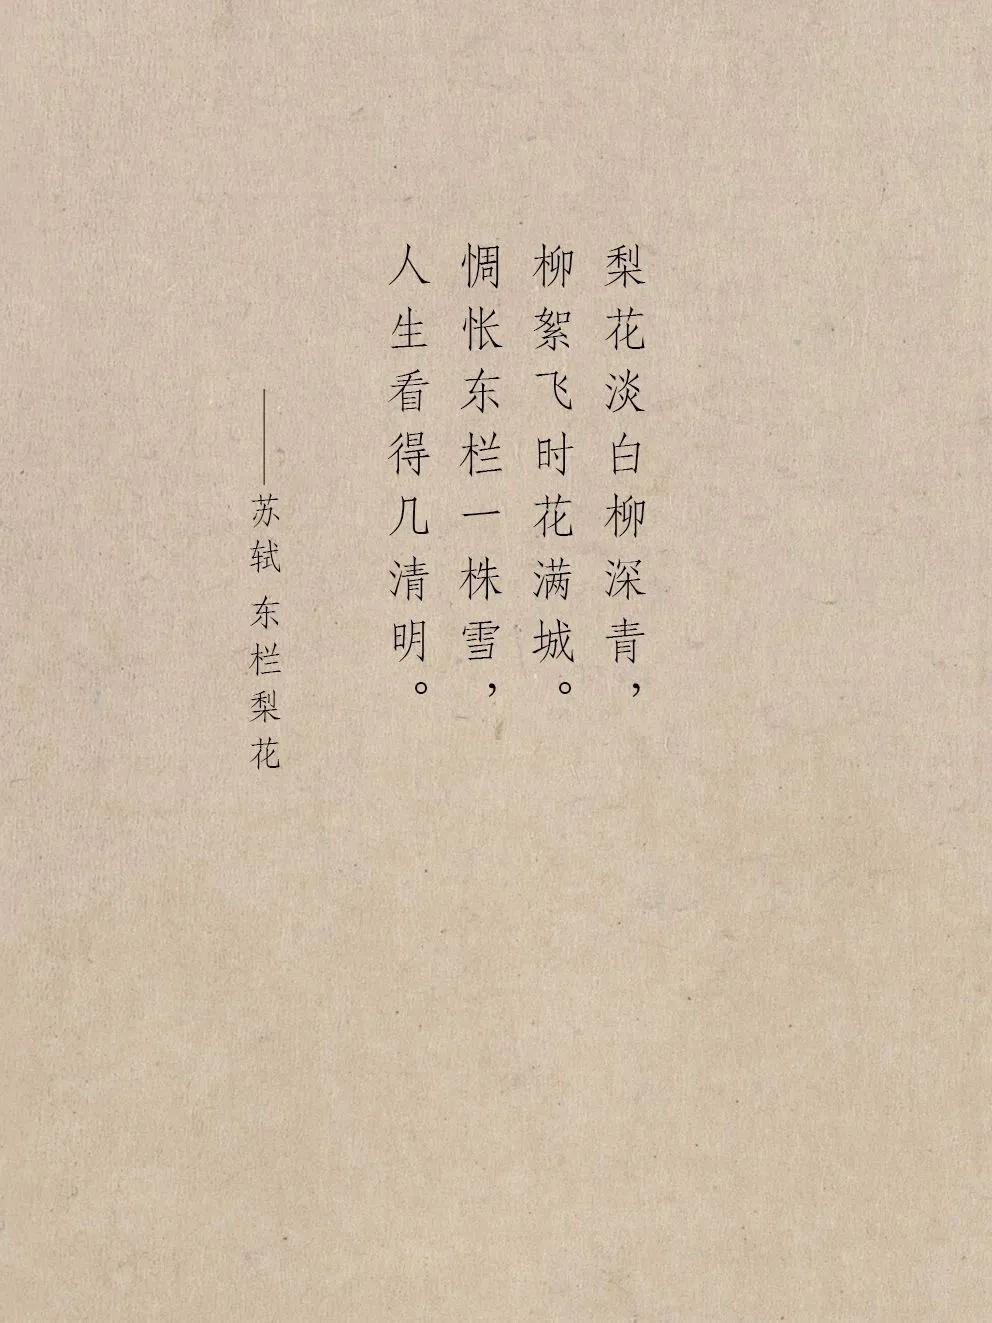 梨花淡白柳深青，
柳絮飞时花满城。
惆怅东栏一株雪，
人生看得几清明。
——苏轼 东栏梨花